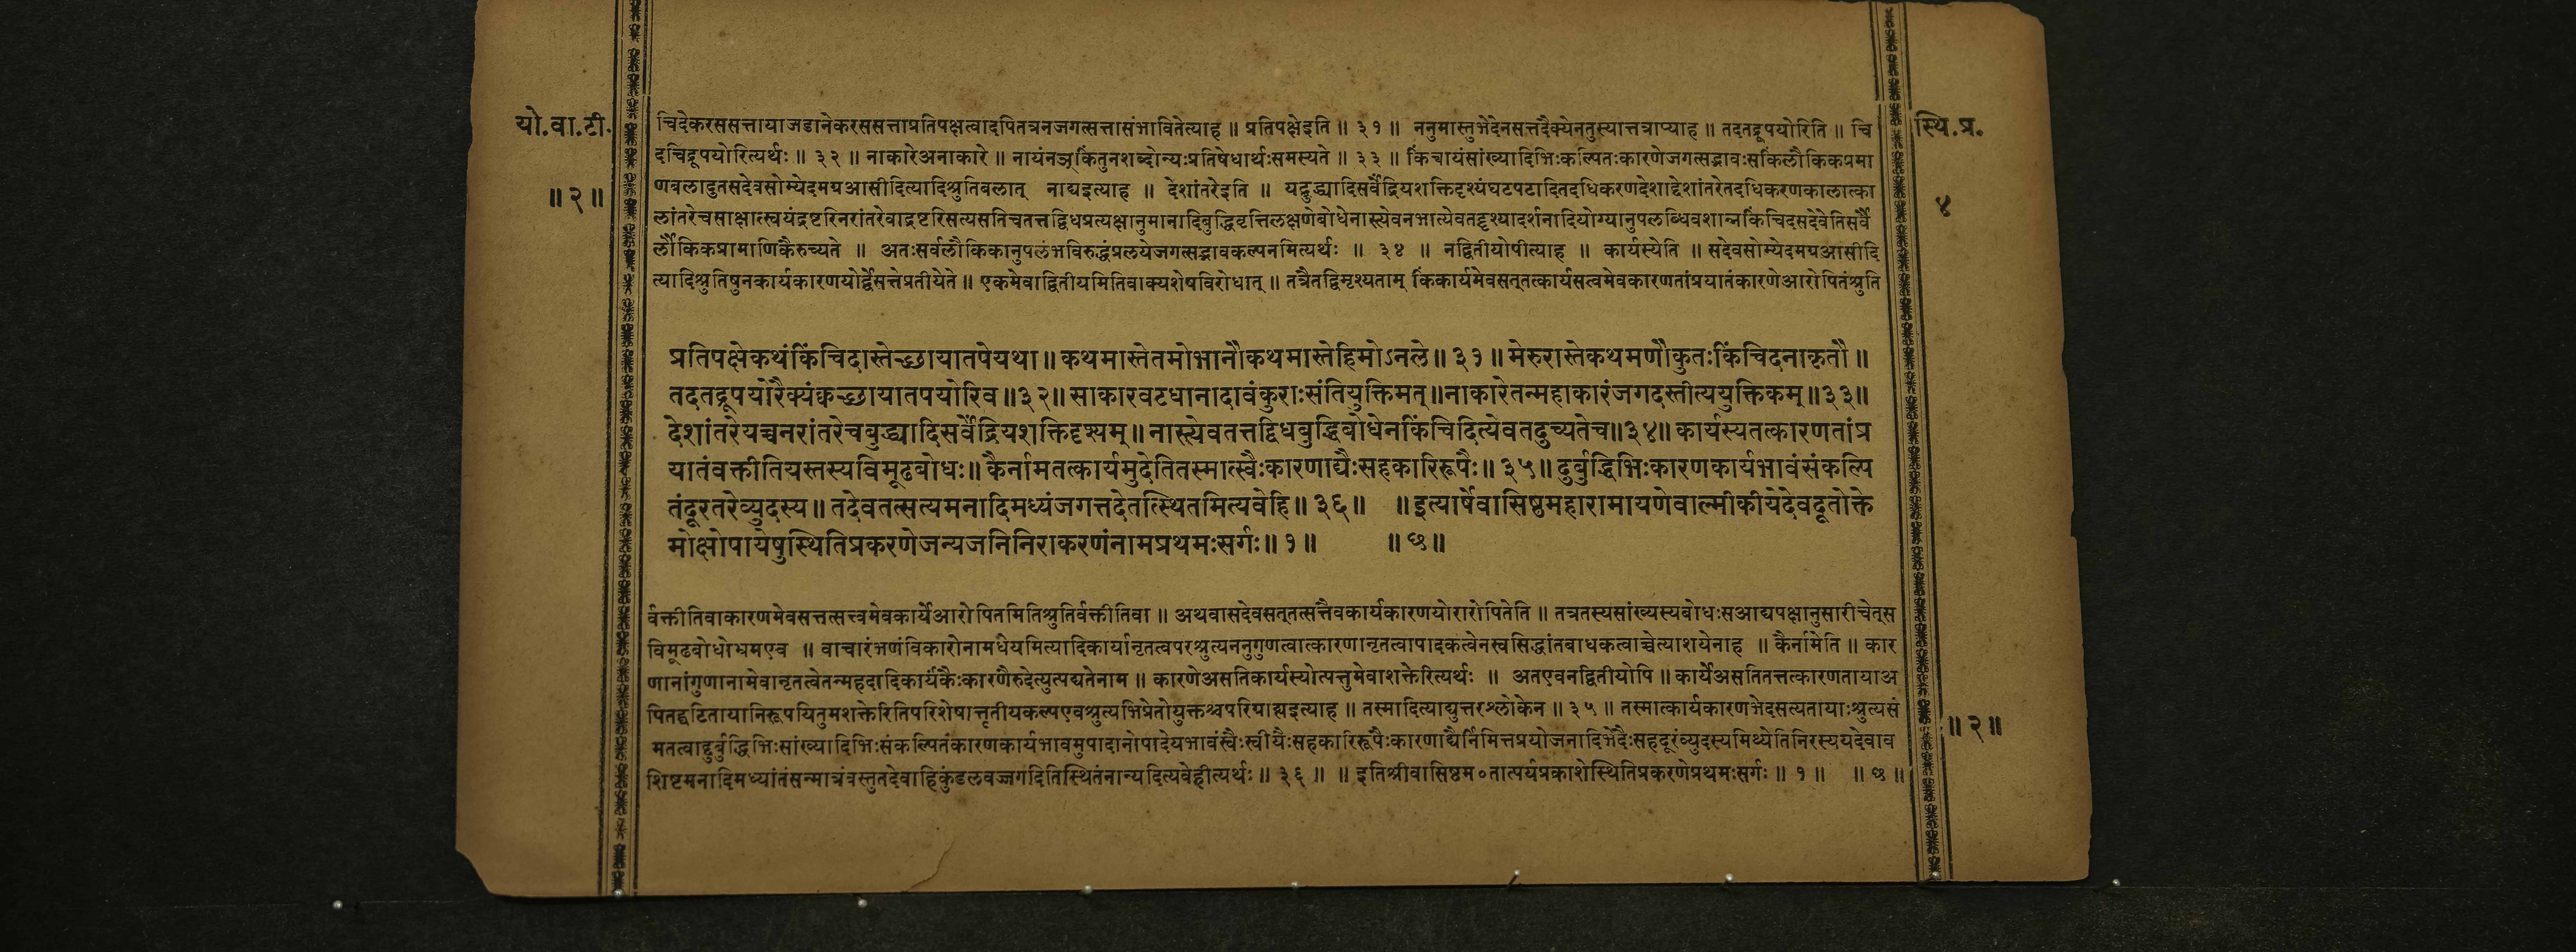 यो.वा.टी.
॥२॥
स्थि.प्र.
४
चिदेकरससत्तायाजडानेकरससत्ताप्रतिपक्षत्वादपितत्रनजगत्सत्तासंभावितेत्याह ॥ प्रतिपक्षेइति ॥ ३१ ॥ ननुमास्तुभेदेनसत्तदैक्येनतुस्यात्तत्राप्याह ॥ तदतद्रूपयोरिति ॥ चि
दचिद्रूपयोरित्यर्थः ॥ ३२ ॥ नाकारेअनाकारे ॥ नायंनञ्किंतुनशब्दोन्यःप्रतिषेधार्थःसमस्यते ॥ ३३ ॥ किंचायंसांख्यादिभिःकल्पितःकारणेजगत्सद्भावःसकिंलौकिकप्रमा
णबलादुतसदेवसोम्येदमग्रआसीदित्यादिश्रुतिबलात् नाद्यइत्याह ॥ देशांतरेइति ॥ यद्बुद्ध्यादिसर्वेंद्रियशक्तिदृश्यंघटपटादितदधिकरणदेशाद्देशांतरेतदधिकरणकालात्का
लांतरेचसाक्षात्स्वयंद्रष्टरिनरांतरेवाद्रष्टरिसत्यसतिचतत्तद्विधप्रत्यक्षानुमानादिबुद्धिवृत्तिलक्षणेबोधेनास्त्येवनभात्येवतद्दृश्यादर्शनादियोग्यानुपलब्धिवशान्नकिंचिदसदेवेतिसर्वै
र्लौकिकप्रामाणिकैरुच्यते ॥ अतःसर्वलौकिकानुपलंभविरुद्धंप्रलयेजगत्सद्भावकल्पनमित्यर्थः ॥ ३४ ॥ नद्वितीयोपीत्याह ॥ कार्यस्येति ॥ सदेवसोम्येदमग्रआसीदि
त्यादिश्रुतिषुनकार्यकारणयोर्द्वेसत्तेप्रतीयेते ॥ एकमेवाद्वितीयमितिवाक्यशेषविरोधात् ॥ तत्रैतद्विमृश्यताम् किंकार्यमेवसत्तत्कार्यसत्वमेवकारणतांप्रयातंकारणेआरोपितंश्रुति
प्रतिपक्षेकथंकिंचिदास्तेच्छायातपेयथा॥ कथमास्तेतमोभानौकथमास्तेहिमोऽनले॥ ३१॥ मेरुरास्तेकथमणौकुतःकिंचिदनाकृतौ॥
तदतद्रूपयोरैक्यंक्वच्छायातपयोरिव॥३२॥ साकारवटधानादावंकुराःसंतियुक्तिमत्॥नाकारेतन्महाकारंजगदस्तीत्ययुक्तिकम्॥३३॥
देशांतरेयच्चनरांतरेचबुद्ध्यादिसर्वेंद्रियशक्तिदृश्यम्॥ नास्त्येवतत्तद्विधबुद्धिबोधेनकिंचिदित्येवतदुच्यतेच॥३४॥ कार्यस्यतत्कारणतांप्र
यातंवक्तीतियस्तस्यविमूढबोधः॥ कैर्नामतत्कार्यमुदेतितस्मात्स्वैःकारणाद्यैःसहकारिरूपैः॥ ३५॥ दुर्बुद्धिभिःकारणकार्यभावंसंकल्पि
तंदूरतरेव्युदस्य॥ तदेवतत्सत्यमनादिमध्यंजगत्तदेतत्स्थितमित्यवेहि॥ ३६॥ ॥इत्यार्षेवासिष्ठमहारामायणेवाल्मीकीयेदेवदूतोक्ते
मोक्षोपायेषुस्थितिप्रकरणेजन्यजनिनिराकरणंनामप्रथमःसर्गः॥ १॥ ॥ छ॥
र्वक्तीतिवाकारणमेवसत्तत्सत्त्वमेवकार्येआरोपितमितिश्रुतिर्वक्तीतिवा ॥ अथवासदेवसत्तत्सत्तैवकार्यकारणयोरारोपितेति ॥ तत्रतस्यसांख्यस्यबोधःसआद्यपक्षानुसारीचेत्स
विमूढबोधोभ्रमएव ॥ वाचारंभणंविकारोनामधेयमित्यादिकार्यानृतत्वपरश्रुत्यननुगुणत्वात्कारणानृतत्वापादकत्वेनस्वसिद्धांतबाधकत्वाच्चेत्याशयेनाह ॥ कैर्नामेति ॥ कार
णानांगुणानामेवानृतत्वेतन्महदादिकार्यंकैःकारणैरुदेत्युत्पद्यतेनाम ॥ कारणेअसतिकार्यस्योत्पत्तुमेवाशक्तेरित्यर्थः ॥ अतएवनद्वितीयोपि ॥ कार्येअसतितत्तत्कारणतायाअ
पितद्घटितायानिरूपयितुमशक्तेरितिपरिशेषात्तृतीयकल्पएवश्रुत्यभिप्रेतोयुक्तश्चपरिग्राह्यइत्याह ॥ तस्मादित्याद्युत्तरश्लोकेन ॥ ३५ ॥ तस्मात्कार्यकारणभेदसत्यतायाःश्रुत्यसं
मतत्वाद्दुर्बुद्धिभिःसांख्यादिभिःसंकल्पितंकारणकार्यभावमुपादानोपादेयभावंस्वैःस्वीयैःसहकारिरूपैःकारणाद्यैर्निमित्तप्रयोजनादिभेदैःसहदूरंव्युदस्यमिथ्येतिनिरस्ययदेवाव
शिष्टमनादिमध्यांतंसन्मात्रंवस्तुतदेवाहिकुंडलवज्जगदितिस्थितंनान्यदित्यवेहीत्यर्थः ॥ ३६ ॥ ॥ इतिश्रीवासिष्ठम०तात्पर्यप्रकाशेस्थितिप्रकरणेप्रथमःसर्गः ॥ १ ॥ ॥ छ ॥
॥२॥